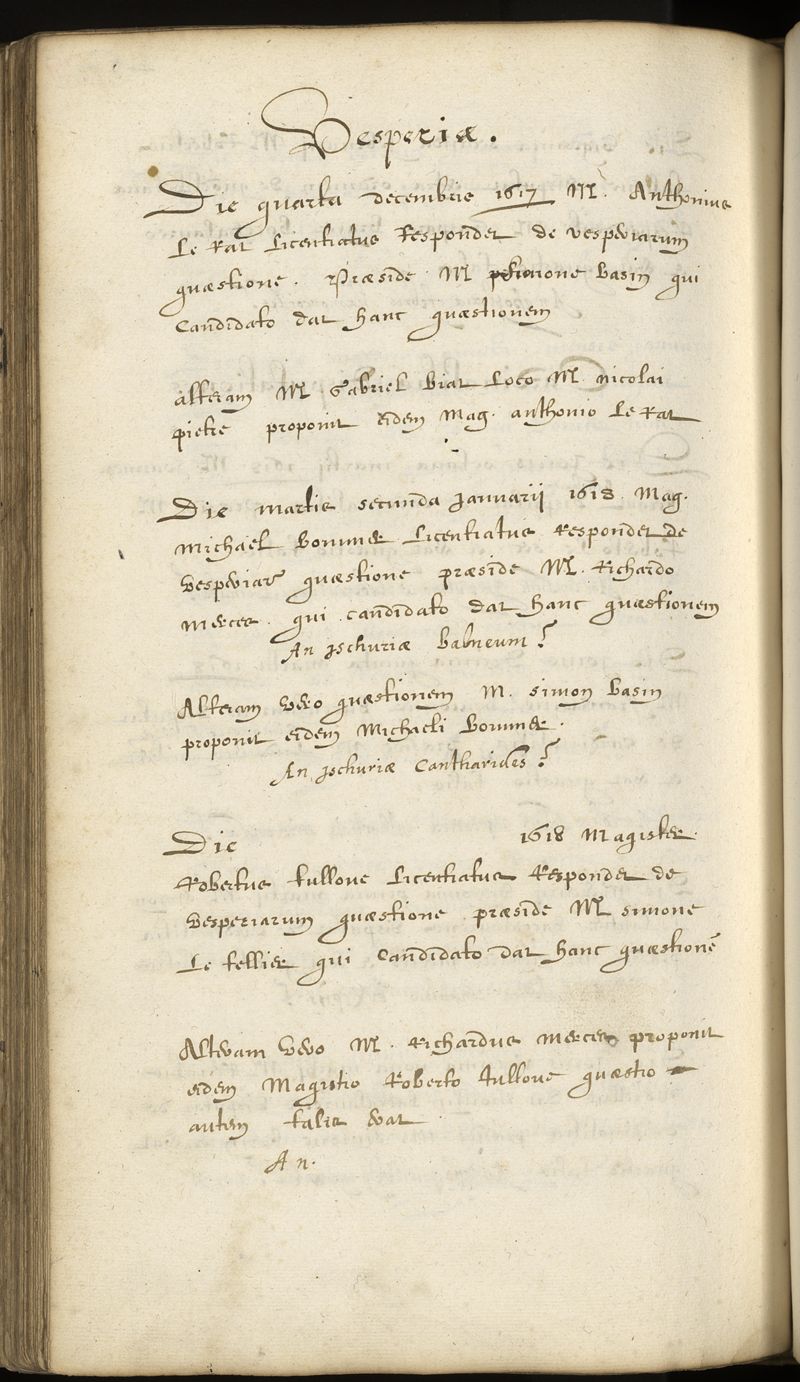 Vesperiæ.
Die quarta decembris 1617 M. Anthonius
Le Rat Licentiatus Respondet de vesperiarum
quæstione. Præside M Simone Basin qui
Candidato dat hanc quæstionem
alteram M Gabriel Biat Loco M nicolai
pietre proponit eidem Mag. anthonio Le Rat
Die martis secunda Januarij 1618. Mag.
Michael Bommer Licentiatus Respondet de
Vesperiar quæstione præside M. Richardo
Mercer. qui candidato dat hanc quæstionem
An Ischuriæ balneum?
Alteram vero quæstionem M. simon basin
proponit eidem Michaeli Bommer.
An Ischuriæ Cantharides?
Die 1618 Magister
Robertus tulloue Licentiatus Respondet de
Vesperiarum quæstione præside M simone
Le tellier qui Candidato dat hanc quæstionē
Alteram vero M. Richardus Mercer proponit
eidem Magistro Roberto tulloue quæstio
autem talis erat
An.